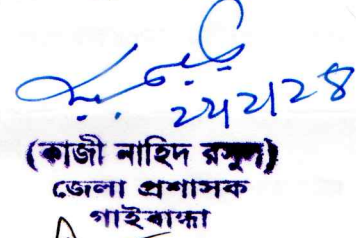 (কাজী নাহিদ রসুল)
জেলা প্রশাসক
গাইবান্ধা